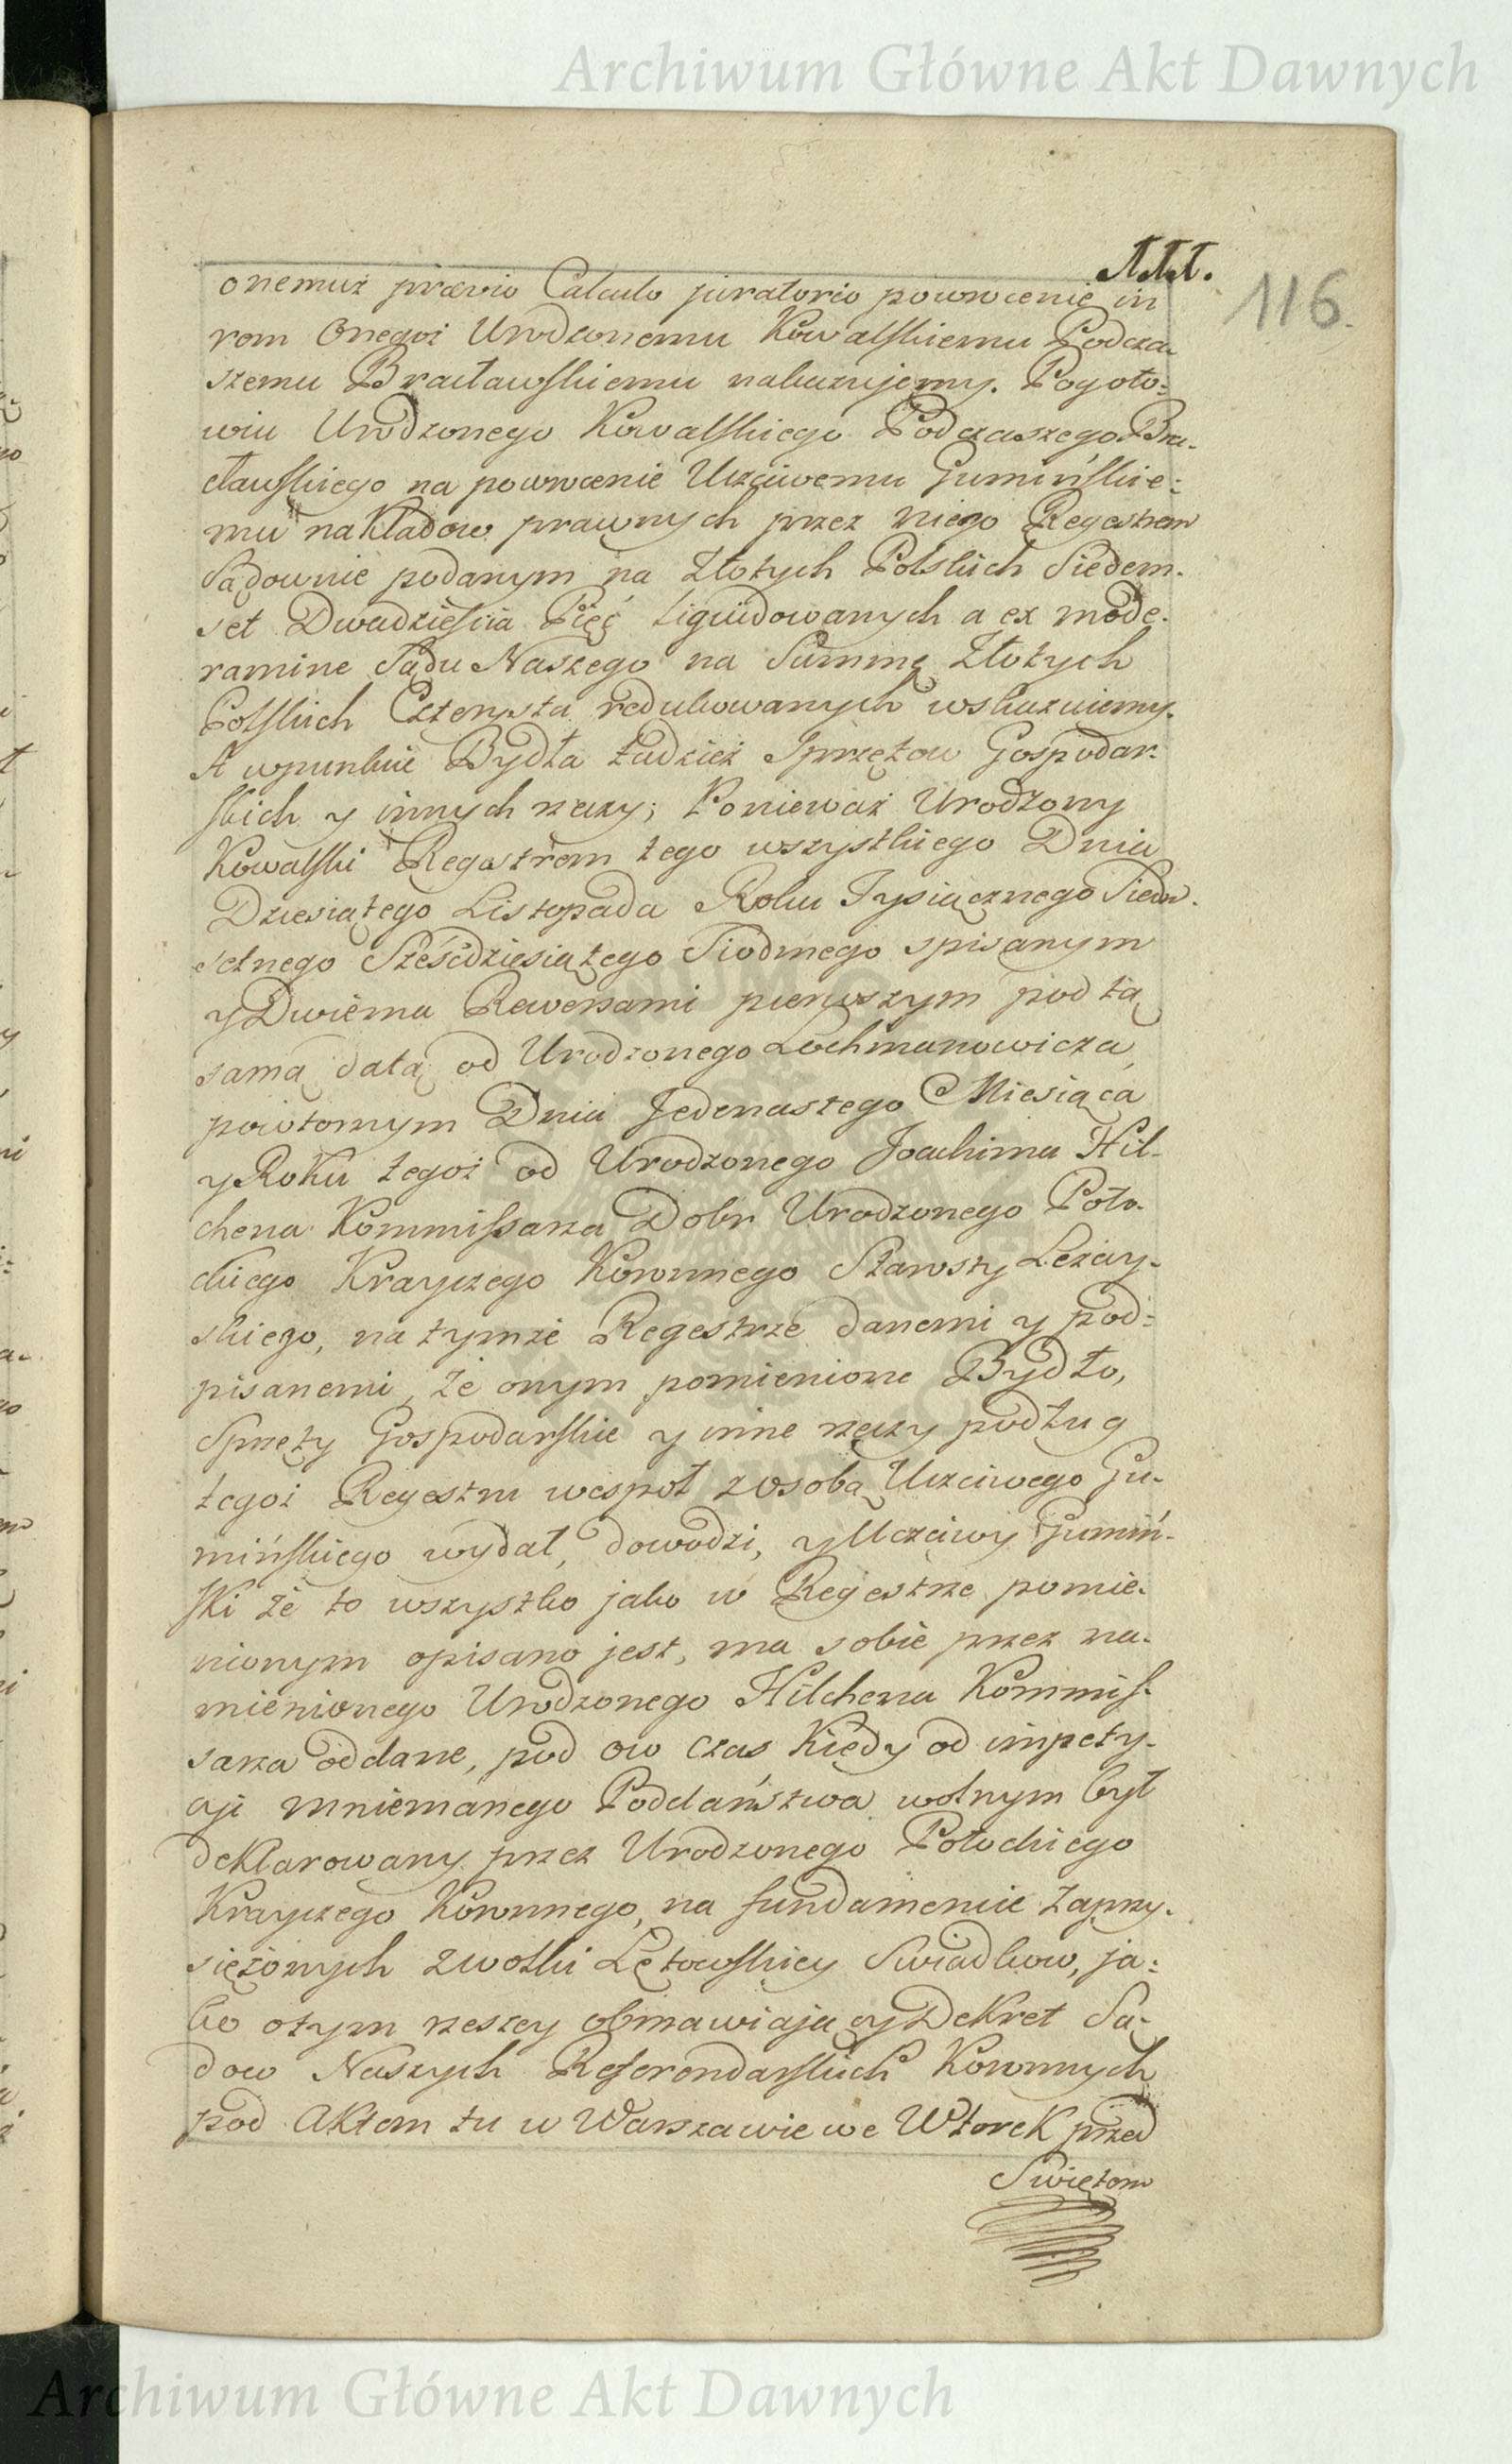 Archiwum Główne Akt Dawnych
116
onemuż prævio Calculo juratorio powrocenie in
rem Onegoż Urodzonemu Kowalskiemu Podcza
szemu Bracławskiemu nakazujemy. Pogoto=
wiu Urodzonego Kowalskiego Podczaszego Bra-
cławskiego na powrocenie Uczciwemu Gumińskie=
mu nakładow prawnych przez niego Regestrem
Sądownie podanym na Złotych Polskich Siedem-
set Dwadzieścia Pięć liquidowanych a ex mode-
ramine Sądu Naszego na Summę Złotych
Polskich Czterysta redukowanych wskazuiemy.
A wpunkcie Bydła tudzież Sprzętow Gospodar-
skich y innych rzeczy; Ponieważ Urodzony
Kowalski Regestrem tego wszystkiego Dnia
Dziesiątego Listopada Roku Tysiącznego Siedm-
setnego Sześćdziesiątego Siodmego spisanym
y Dwiema Rewersami pierwszym pod tą
samą datą od Urodzonego Lochmanowicza
powtornym Dnia Jedenastego Miesiąca
y Roku tegoż od Urodzonego Joachima Hil-
chena Kommissarza Dobr Urodzonego Poto-
ckiego Krayczego Koronnego Starosty Leżay-
skiego, na tymże Regestrze danemi y pod=
pisanemi, że onym pomienione Bydło,
Sprzęty Gospodarskie y inne rzeczy podług
tegoż Regestru wespoł zosobą Uczciwego Gu-
mińskiego wydał, dowodzi, y Uczciwy Gumiń-
ski że to wszystko jako w Regestrze pomie-
nionym opisano jest, ma sobie przez na-
mienionego Urodzonego Hilchena Kommis-
sarza oddane, pod ow czas kiedy od impety-
cji mniemanego Poddaństwa wolnym był
deklarowany przez Urodzonego Potockiego
Krayczego Koronnego, na fundamencie zaprzy-
siężonych zwolki Lętowskiey Swiadkow, ja=
ko otym rzeszey obmawiający Dekret Są-
dow Naszych Referendarskich Koronnych
pod Aktem tu w Warszawie we Wtorek przed
Swiętem
Archiwum Główne Akt Dawnych